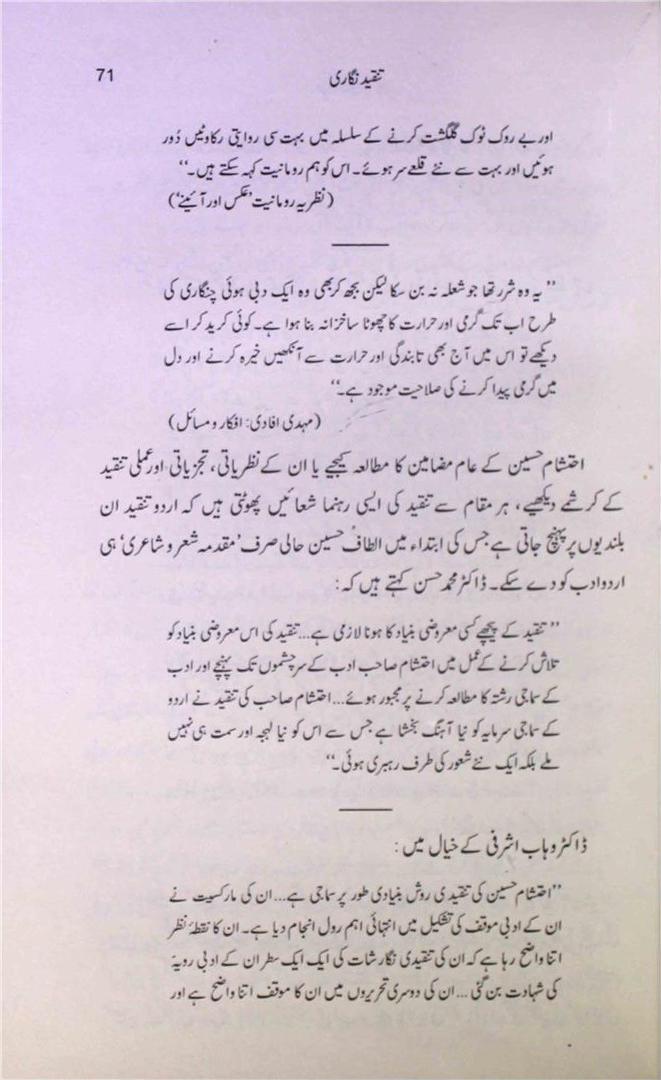 71
تنقید نگاری
اور بے روک ٹوک گلگشت کرنے کے سلسلہ میں بہت سی روایتی رکاوٹیں دُور
ہوئیں اور بہت سے نئے قلعے سر ہوئے۔ اس کو ہم رومانیت کہہ سکتے ہیں۔‘‘
(نظریہ رومانیت ’عکس اور آئینے‘)
’’ یہ وہ شرر تھا جو شعلہ نہ بن سکا لیکن بجھ کر بھی وہ ایک دبی ہوئی چنگاری کی
طرح اب تک گرمی اور حرارت کا چھوٹا سا خزانہ بنا ہوا ہے۔ کوئی کرید کر اسے
دیکھے تو اس میں آج بھی تابندگی اور حرارت سے آنکھیں خیرہ کرنے اور دل
میں گرمی پیدا کرنے کی صلاحیت موجود ہے۔‘‘
(مہدی افادی: افکار و مسائل)
احتشام حسین کے عام مضامین کا مطالعہ کیجیے یا ان کے نظریاتی، تجزیاتی اور عملی تنقید
کے کرشمے دیکھیے، ہر مقام سے تنقید کی ایسی رہنما شعائیں پھوٹتی ہیں کہ اردو تنقید ان
بلندیوں پر پہنچ جاتی ہے جس کی ابتداء میں الطاف حسین حالی صرف ’مقدمہ شعر و شاعری‘ ہی
اردو ادب کو دے سکے۔ ڈاکٹر محمد حسن کہتے ہیں کہ:
’’ تنقید کے پیچھے کسی معروضی بنیاد کا ہونا لازمی ہے... تنقید کی اس معروضی بنیاد کو
تلاش کرنے کے عمل میں احتشام صاحب ادب کے سرچشموں تک پہنچے اور ادب
کے سماجی رشتہ کا مطالعہ کرنے پر مجبور ہوئے... احتشام صاحب کی تنقید نے اردو
کے سماجی سرمایہ کو نیا آہنگ بخشا ہے جس سے اس کو نیا لہجہ اور سمت ہی نہیں
ملے بلکہ ایک نئے شعور کی طرف رہبری ہوئی۔‘‘
ڈاکٹر وہاب اشرفی کے خیال میں:
’’احتشام حسین کی تنقیدی روش بنیادی طور پر سماجی ہے... ان کی مارکسیت نے
ان کے ادبی موقف کی تشکیل میں انتہائی اہم رول انجام دیا ہے۔ ان کا نقطۂ نظر
اتنا واضح رہا ہے کہ ان کی تنقیدی نگارشات کی ایک ایک سطر ان کے ادبی رویہ
کی شہادت بن گئی... ان کی دوسری تحریروں میں ان کا موقف اتنا واضح ہے اور